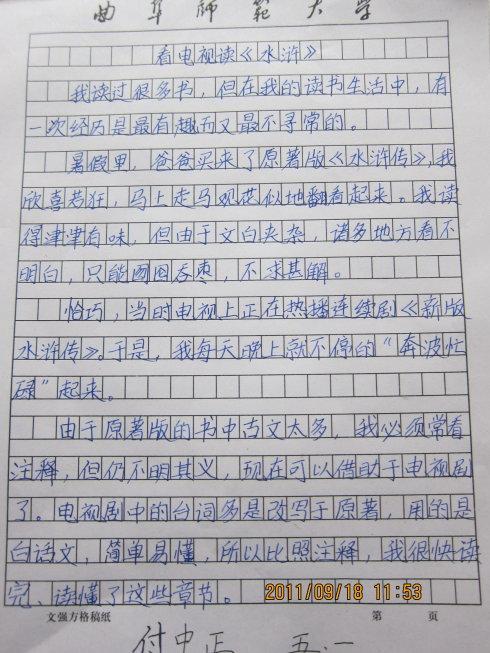 曲阜师范大学
看电视读《水浒》
我读过很多书，但在我的读书生活中，有
一次经历是最有趣而又最不寻常的。
暑假里，爸爸买来了原著版《水浒传》，我
欣喜若狂，马上走马观花似地翻看起来。我读
得津津有味，但由于文白夹杂，诸多地方看不
明白，只能囫囵吞枣，不求甚解。
恰巧，当时电视上正在热播连续剧《新版
水浒传》。于是，我每天晚上就不停的“奔波忙
碌”起来。
由于原著版的书中古文太多，我必须常看
注释，但仍不明其义，现在可以借助于电视剧
了。电视剧中的台词多是改写于原著，用的是
白话文，简单易懂，所以比照注释，我很快读
完、读懂了这些章节。
2011/09/18 11:53
文强方格稿纸 第 页
付中正 五.一